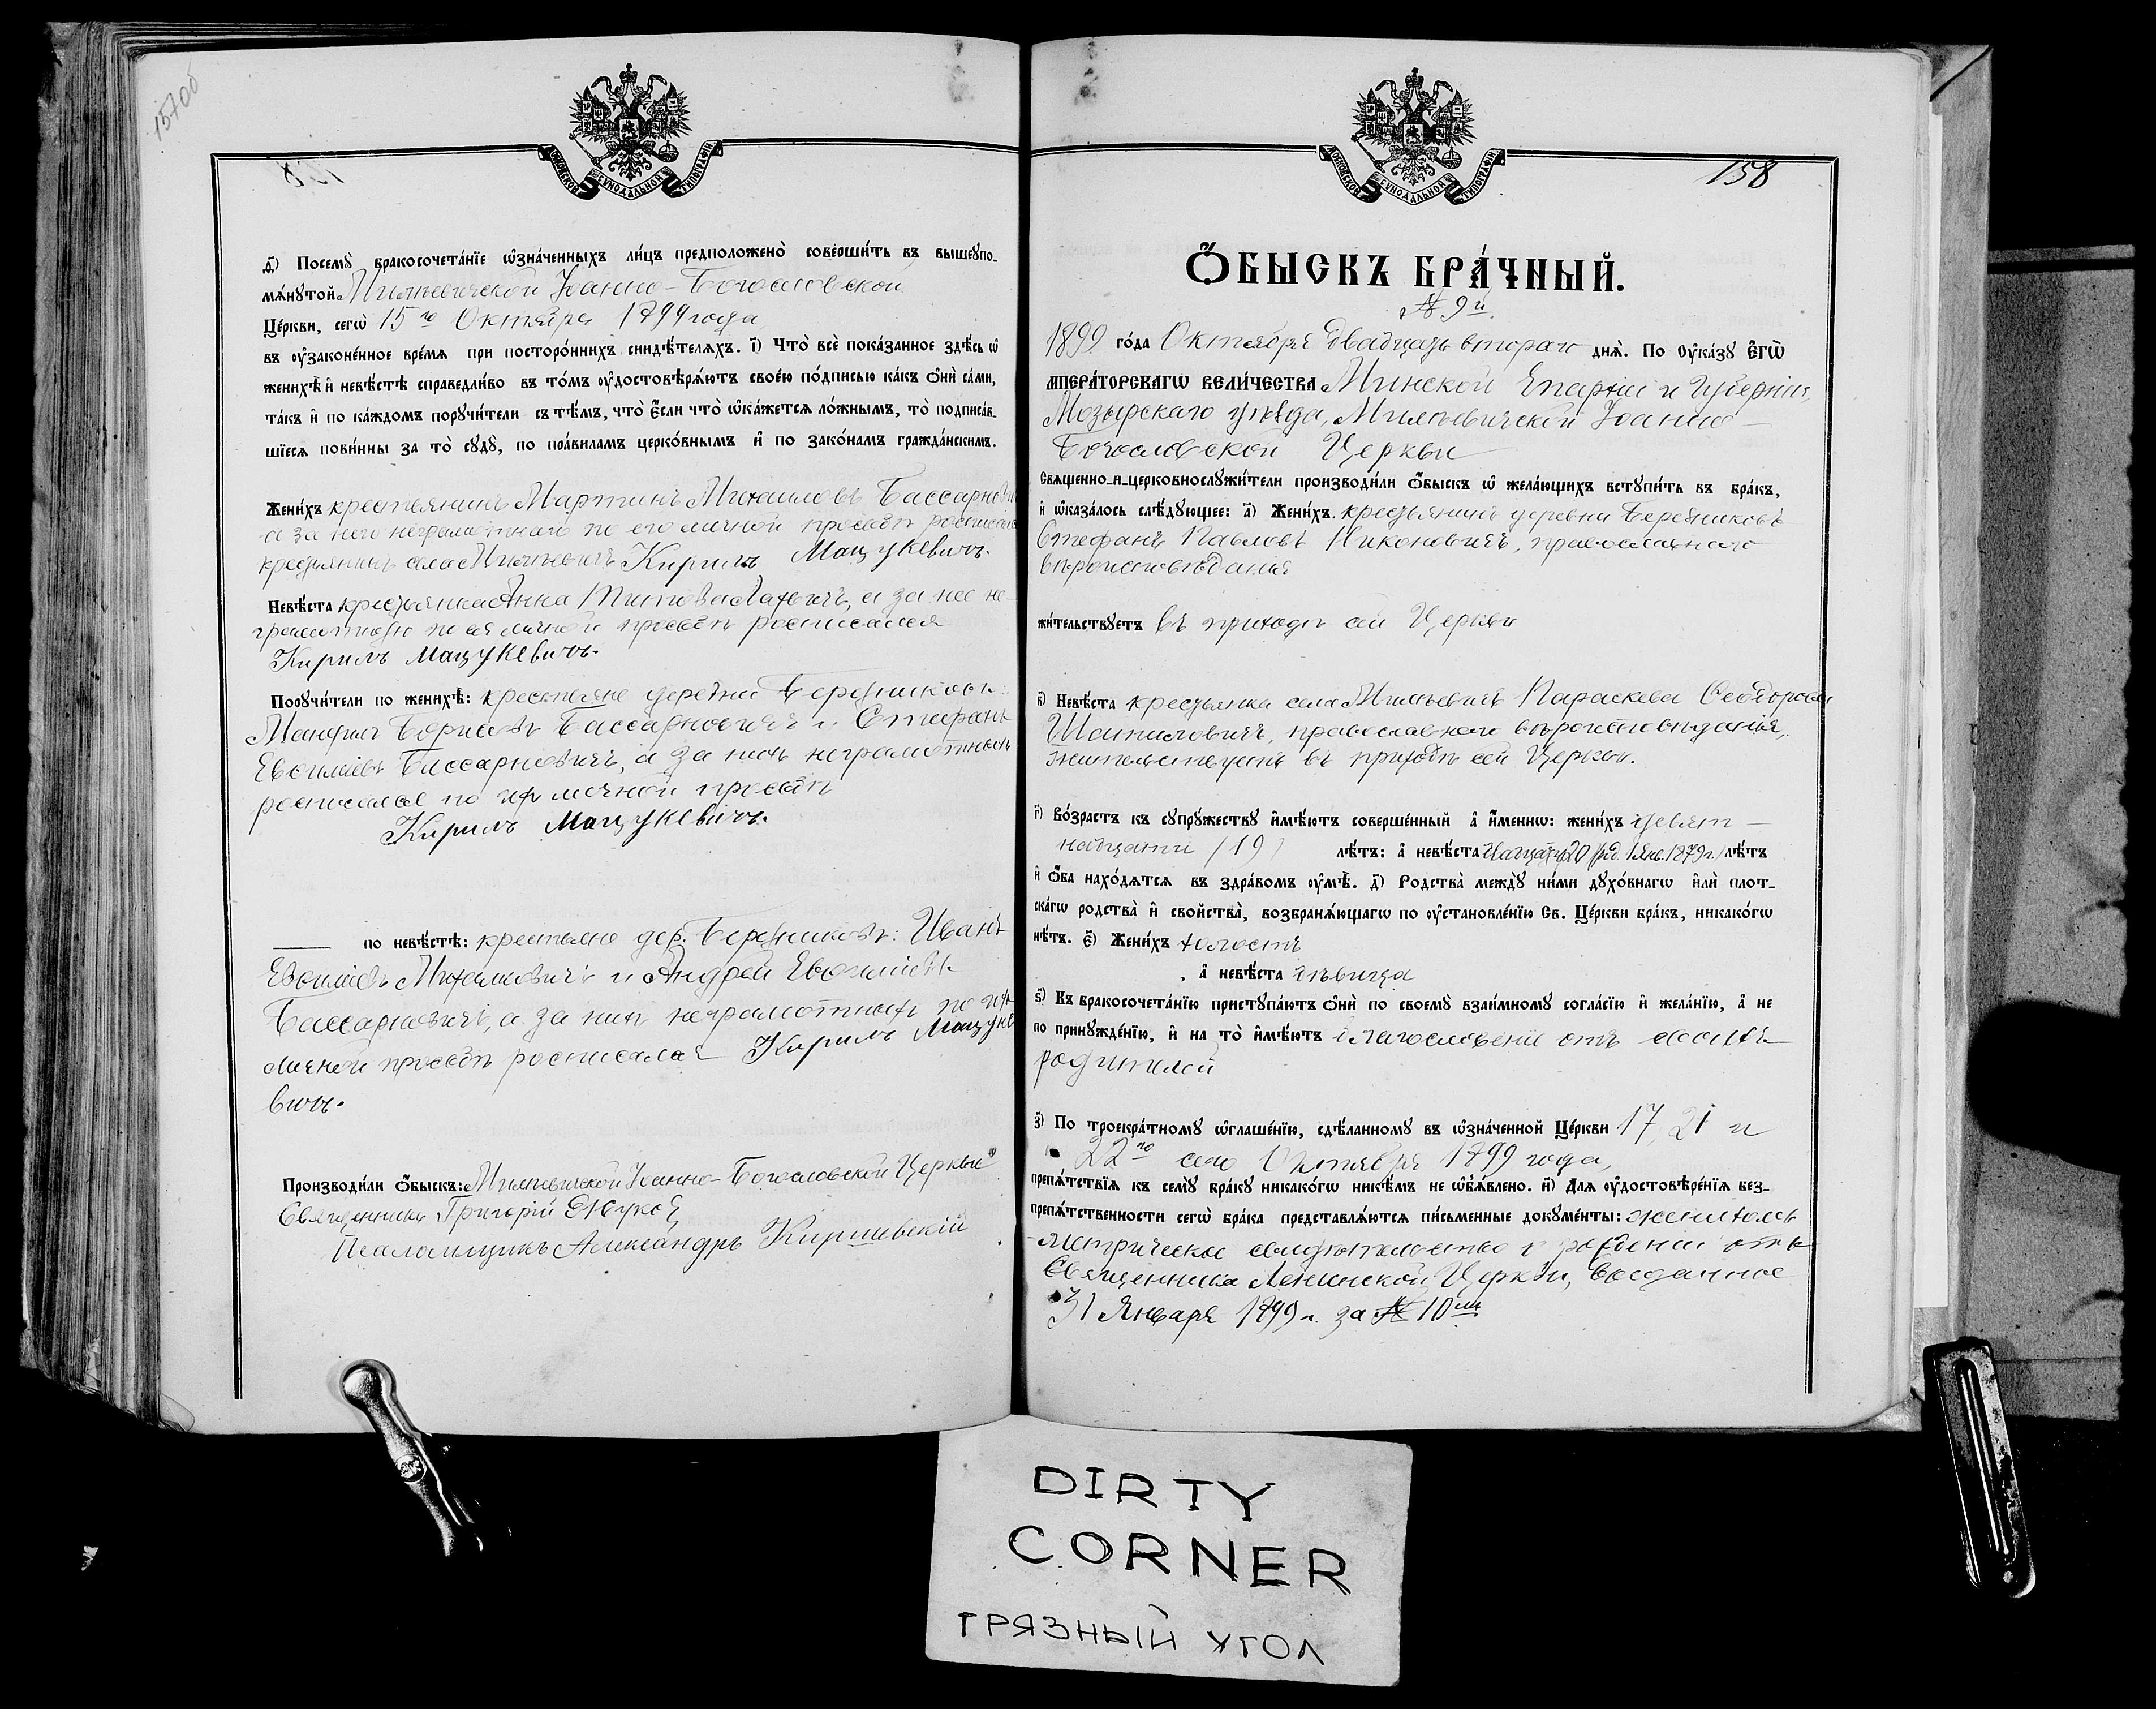 157об
МОСКОВСКОЙ СУНОДАЛЬНОЙ ТИПОГРАФІИ
ѳ҃) Посемꙋ̀ бракосочета́нїе ѡ҆зна́ченныхъ ли́цъ предположено̀ соверши́ть въ вышеꙋпо-
мѧ́нꙋтой Милѣвичской Іоанно-Богословской
Це́ркви, сегѡ̀ 15го Октября 1899 года
въ ᲂу҆законе́нное вре́мѧ при посторо́ннихъ свидѣ́телѧхъ. і҃) Что̀ всѐ пока́занное здѣ́сь ѡ҆
женихѣ̀ и҆ невѣ́стѣ справедли́во въ то́мъ ᲂу҆достовѣрѧ́ютъ свое́ю по́дписью ка́къ ѻ҆нѝ са́ми,
та́къ и҆ по ка́ждомъ порꙋчи́тели съ тѣ́мъ, что̀ є҆́сли что̀ ѡ҆ка́жетсѧ ло́жнымъ, то̀ подписа́в-
шїесѧ пови́нны за то̀ сꙋдꙋ̀, по пра́виламъ церко́внымъ и҆ по зако́намъ гражда́нскимъ.
Жени́хъ крестьянинъ Мартинъ Михаиловъ Бассарнови
а за него неграмотнаго по его личной просьбѣ росписался
крестьянинъ села Милѣвичъ Кирилъ Мацукевичъ.
Невѣ́ста крестьянка Анна Титова, а за нее не-
грамотную по ея личной просьбѣ росписался
Кирилъ Мацукевичъ.
Порꙋчи́тели по женихѣ̀: крестьяне деревни Бережниковъ:
Борисовъ Бассарновичъ и Стефанъ
Евѳиміевъ Бассарновичъ, а за нихъ неграмотныхъ
росписался по ихъ личной просьбѣ
Кирилъ Мацукевичъ.
по невѣ́стѣ: крестьяне дер. Бережниковъ: Иванъ
Евѳиміевъ и Андрей Евѳиміевъ
Бассарновичъ, а за нихъ неграмотныхъ по ихъ
личной просьбѣ росписался Кирилъ Мацуке
вичъ.
Производи́ли ѻ҆́быскъ: Милѣвичской Іоанно-Богословской Церкви
Священникъ Григорій
Псаломщикъ Александръ Киршевскій
МОСКОВСКОЙ СУНОДАЛЬНОЙ ТИПОГРАФІИ
158
Ѻ҆́БЫСКЪ БРА́ЧНЫЙ.
№ 9й.
1899 го́да Октября двадцать втораго днѧ̀. По ᲂу҆ка́зꙋ Є҆гѡ̀
мпера́торскагѡ вели́чества Минской Епархіи и Губерніи,
Мозырскаго уѣзда, Милѣвичской Іоанно-
Богословской Церкви
свѧщенно-и҆-церковнослꙋжи́тели производи́ли ѻ҆́быскъ ѡ҆ жела́ющихъ встꙋпи́ть въ бра́къ,
и҆ ѡ҆каза́лось слѣ́дꙋющее: а҃) Жени́хъ. крестьянинъ деревни Бережниковъ
Стефанъ Павловъ Никоновичъ, православнаго
вѣроисповѣданія
жи́тельствꙋетъ въ приходѣ сей Церкви
в҃) Невѣ́ста крестьянка села Милѣвичъ Параскева Ѳеодорова
Шаншловичъ, православнаго вѣроисповѣданія,
жительствуетъ въ приходѣ сей Церкви.
г҃) Во́зрастъ къ сꙋпрꙋ́жествꙋ и҆мѣ́ютъ соверше́нный а҆ и҆́меннѡ: жени́хъ девят-
надцати (19) лѣ́тъ: а҆ невѣ́ста 20 (род. 1 Янв. 1879 г.) лѣ́тъ
и҆ ѻ҆́ба нахо́дѧтсѧ въ здра́вомъ ᲂу҆мѣ̀. д҃) Родства̀ междꙋ̀ ни́ми дꙋхо́внагѡ и҆лѝ плот-
ска́гѡ родства̀ и҆ свойства̀, возбранѧ́ющагѡ по ᲂу҆становле́нїю Св. Це́ркви бра́къ, никако́гѡ
нѣ́тъ. є҃) Жени́хъ холостъ
а҆ невѣ́ста дѣвица
ѕ҃) Къ бракосочета́нїю пристꙋпа́ютъ ѻ҆нѝ по своемꙋ̀ взаи́мномꙋ согла́сїю и҆ жела́нїю, а҆ не
по принꙋжде́нїю, и҆ на то̀ и҆мѣ́ютъ благословеніе отъ своихъ
родителей
з҃) По троекра́тномꙋ ѡ҆глаше́нїю, сдѣ́ланномꙋ въ ѡ҆зна́ченной Це́ркви 17, 21 и
22го сего Октября 1899 года,
препѧ́тствїѧ къ семꙋ̀ бра́кꙋ никако́гѡ никѣ́мъ не ѡ҆б̾ѧ́влено. и҃) Длѧ ᲂу҆достовѣре́нїѧ без-
препѧ́тственности сегѡ̀ бра́ка представлѧ́ютсѧ пи́сьменные докꙋме́нты: женихомъ
метрическое свидѣтельство о рожденіи отъ
Священника Ленинской Церкви, выданное
31 Января 1899 г. за № 10мъ
DIRTY
CORNER
ГРЯЗНЫЙ УГОЛ